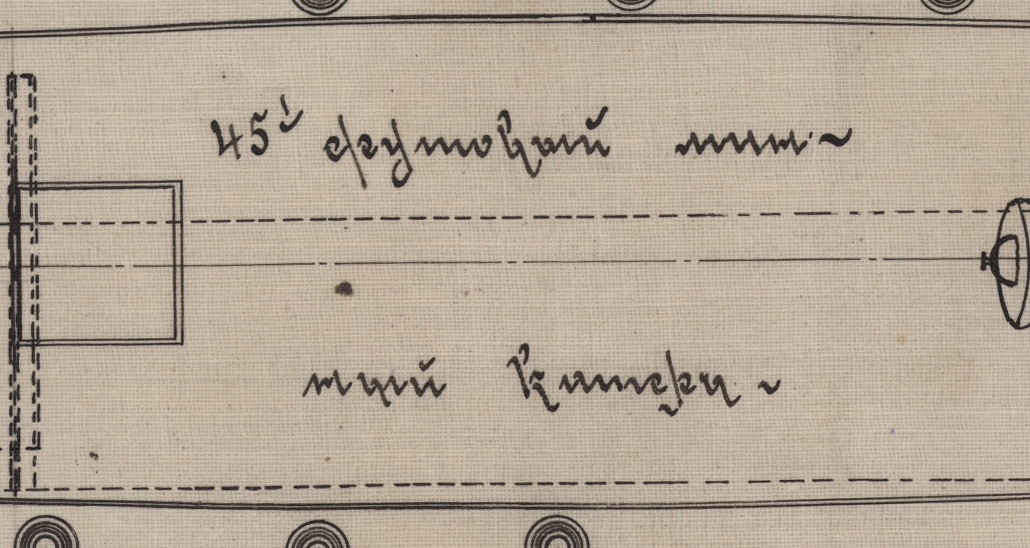 45й футовый мин-
ный катеръ.